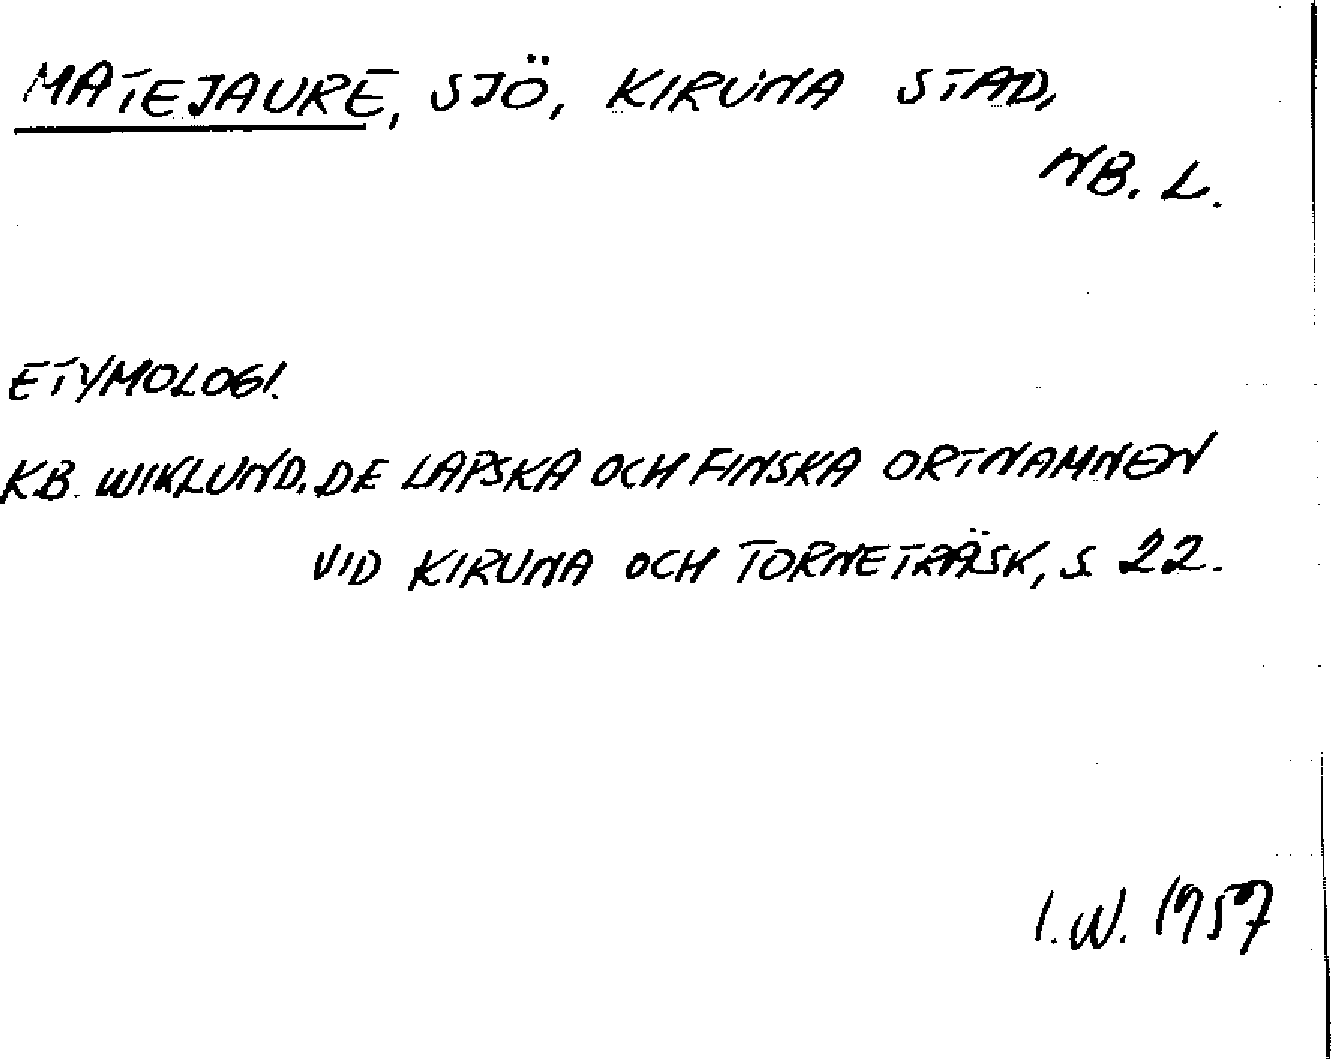 MATEJAURE, SJÖ, KIRUNA STAD,
NB. L.
ETYMOLOGI.
KB. WIKLUND, DE LAPSKA OCH FINSKA ORTNAMNEN
VID KIRUNA OCH TORNETRÄSK, S. 22.
I.W. 1957